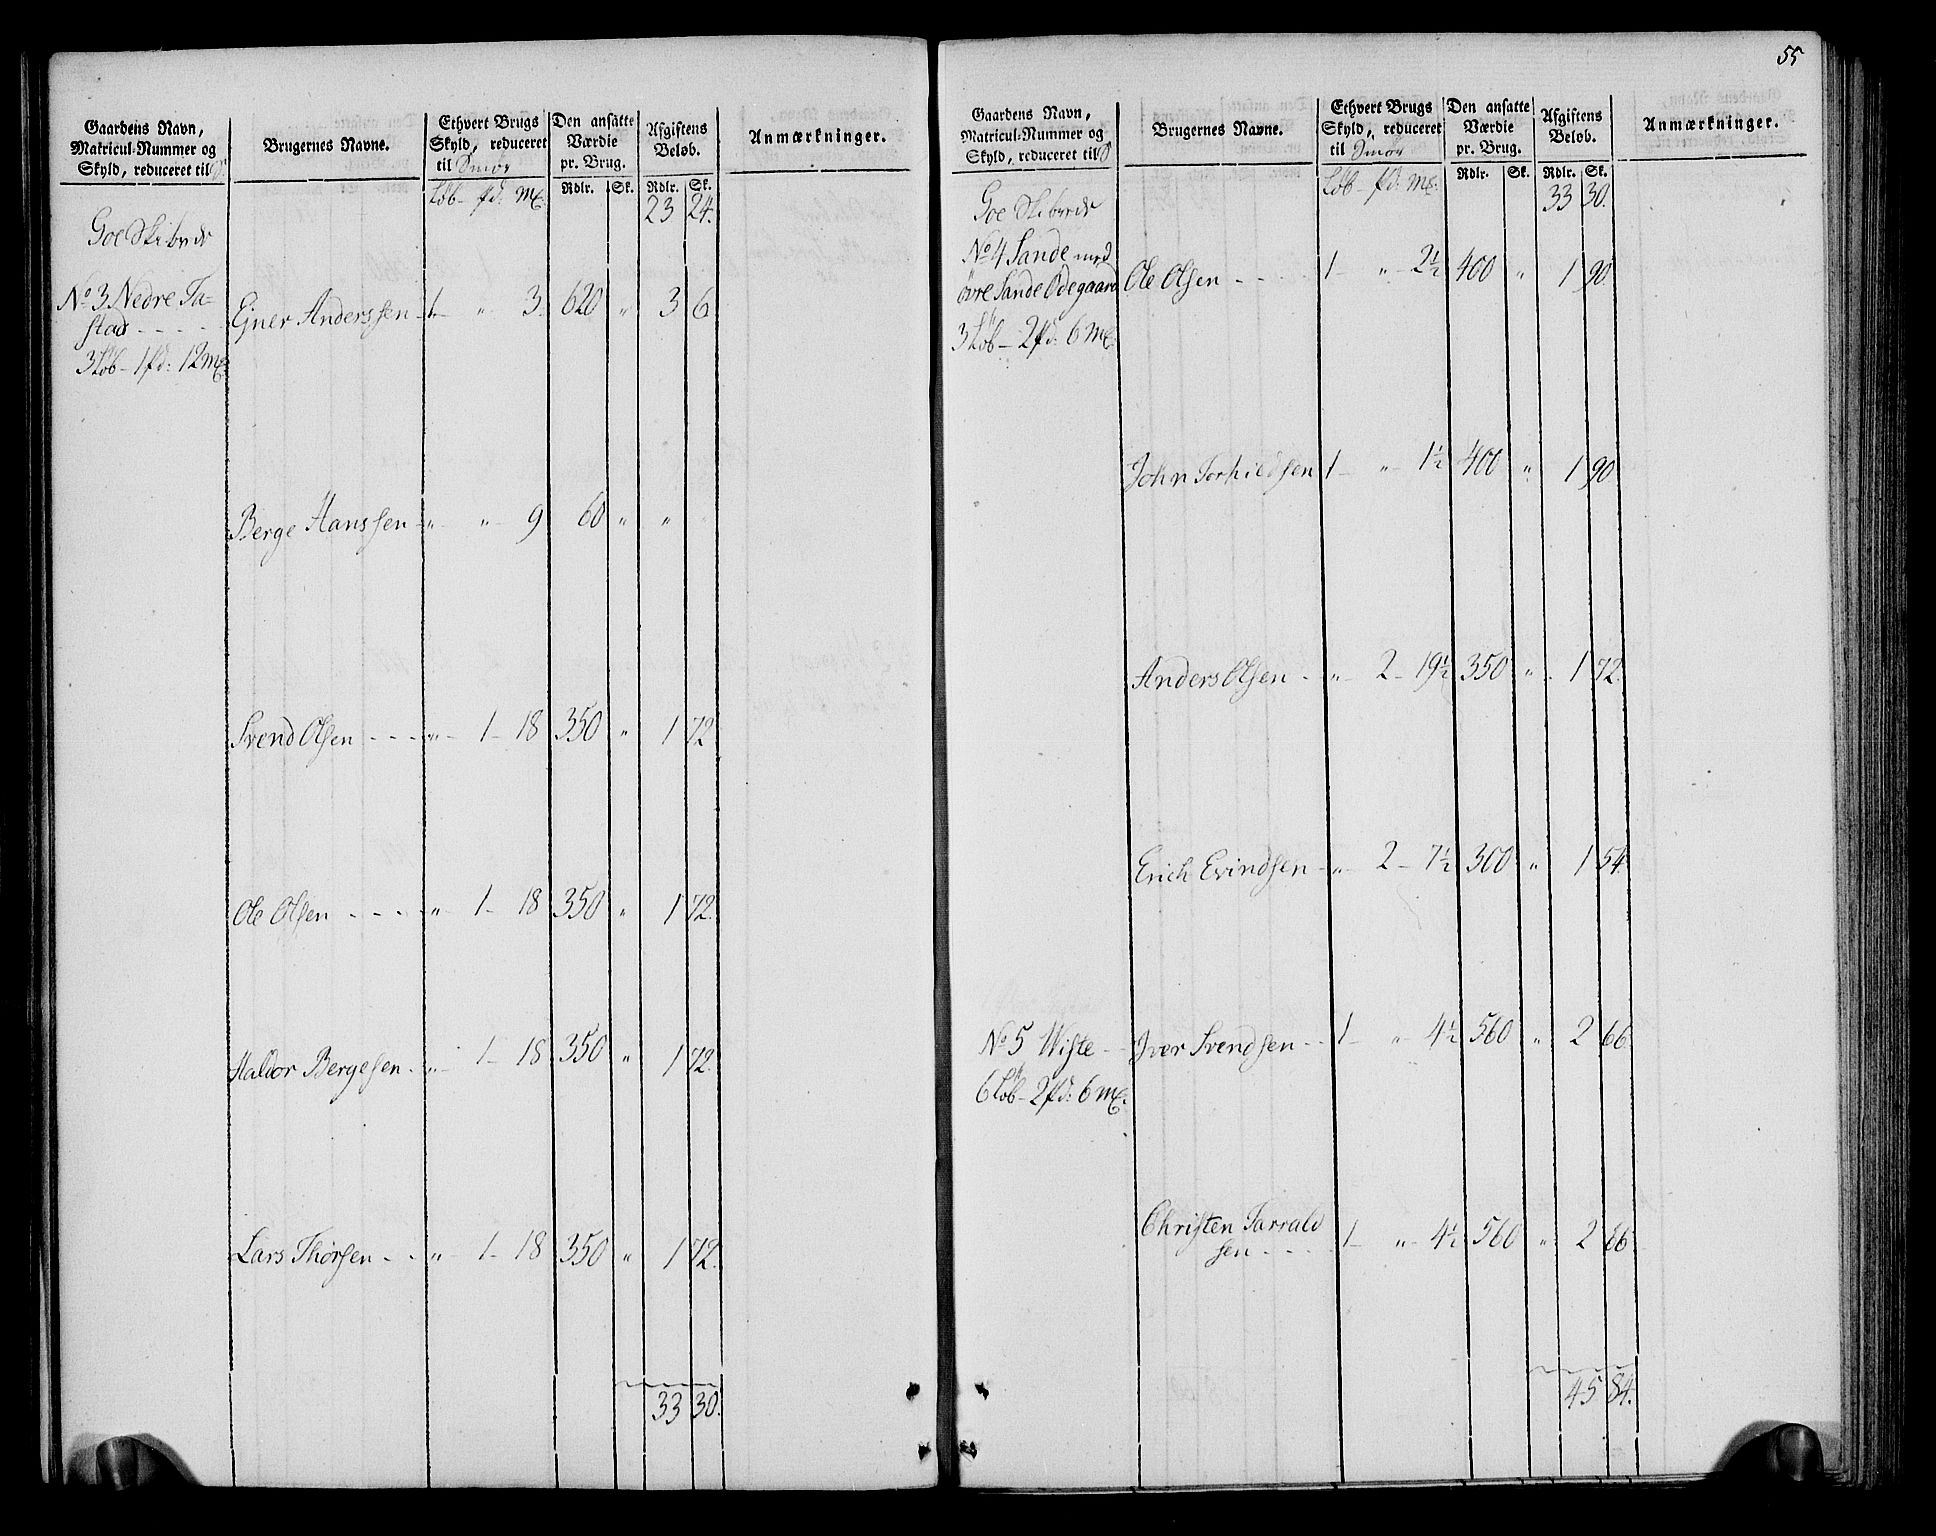 Gaardens Navn,
Matricul-Nummer og
Skyld, reduceret til
Brugernes Navne.
Ethvert Brugs
Skyld, reduceret
til Smör
Den ansatte
Værdie
pr. Brug.
Afgiftens
Beløb.
Anmærkninger.
Löb - pd: Mk:
Rdlr. Sk. Rdlr. Sk.
23 24.
Goe Skibrede
No 3 Nedre Ta-
stad - - - -
3 Löb - 1 pd: 12 mk:
Ejner Anderssen - 1 - " - 3. 620 " 3 6.
Berge Hanssen - " - " - 9 60 " "
Svend Olsen - - - " - 1 - 18 350 " 1 72
Ole Olsen - - - " - 1 - 18 350 " 1 72.
Haldor Bergesen. - " - 1 - 18 350 " 1 72.
Lars Thorsen - - " - 1 - 18 350 " 1 72.
33 30.
55
Gaardens Navn,
Matricul-Nummer og
Skyld, reduceret til
Brugernes Navne.
Ethvert Brugs
Skyld, reduceret
til Smör
Den ansatte
Værdie
pr. Brug.
Afgiftens
Beløb.
Anmærkninger.
Löb - pd: Mk:
Rdlr. Sk. Rdlr. Sk.
33 30.
Goe Skibrede
No 4 Sande med
övre Sande Ödegaard
3 Löb - 2 pd: 6 mk:
Ole Olsen - - - - 1 - " - 2½ 400 " 1 90.
John Torkildsen 1 - " - 1½ 400 " 1 90
Anders Olsen - " - 2 - 19½ 350 " 1 72.
Erich Evindsen - " - 2 - 7½ 300 " 1 54.
No 5 Wiste -
6 Löb - 2 pd: 6 mk:
Iver Svendsen - - 1 - " - 4½ 560 " 2 66.
Christen Tarrald
sen - - - - 1 - " - 4½ 560 " 2 66
45 84.